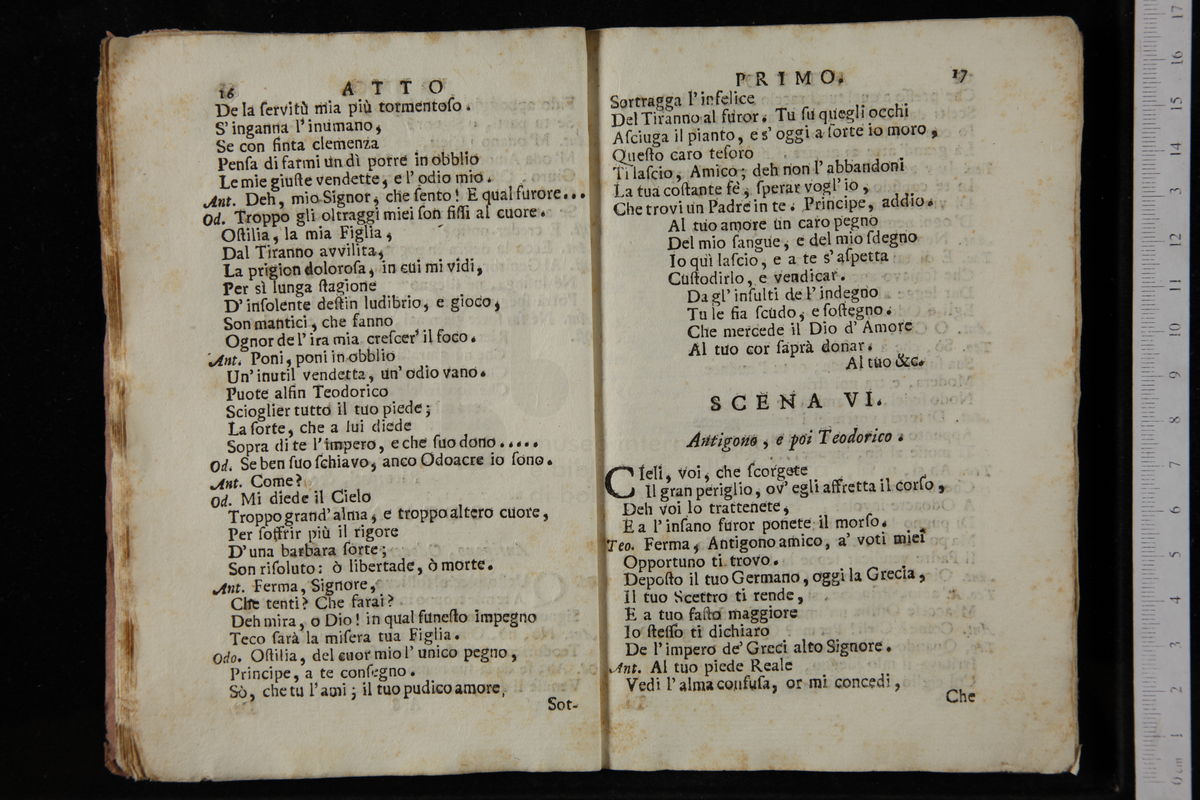 16 ATTO
De la ſervitù mia più tormentoſo.
S' inganna l' inumano,
Se con finta clemenza
Penſa di farmi un dì porre in obblio
Le mie giuſte vendette, e l' odio mio.
Ant. Deh, mio Signor, che ſento! E qual furore...
Od. Troppo gli oltraggi miei ſon fiſſi al cuore.
Oſtilia, la mia Figlia,
Dal Tiranno avvilita,
La prigion doloroſa, in cui mi vidi,
Per sì lunga ſtagione
D' inſolente deſtin ludibrio, e gioco,
Son mantici, che fanno
Ognor de l' ira mia creſcer' il foco.
Ant. Poni, poni in obblio
Un' inutil vendetta, un' odio vano.
Puote alfin Teodorico
Scioglier tutto il tuo piede;
La ſorte, che a lui diede
Sopra di te l' impero, e che ſuo dono.....
Od. Se ben ſuo ſchiavo, anco Odoacre io ſono.
Ant. Come?
Od. Mi diede il Cielo
Troppo grand' alma, e troppo altero cuore,
Per ſoffrir più il rigore
D' una barbara ſorte;
Son riſoluto: ò libertade, ò morte.
Ant. Ferma, Signore,
Che tenti? Che farai?
Deh mira, o Dio! in qual funeſto impegno
Teco ſarà la miſera tua Figlia.
Odo. Oſtilia, del cuor mio l' unico pegno,
Principe, a te conſegno.
Sò, che tu l' ami; il tuo pudico amore,
Sot-
PRIMO. 17
Sortragga l' infelice
Del Tiranno al furor. Tu ſu quegli occhi
Aſciuga il pianto, e s' oggi a ſorte io moro,
Queſto caro teſoro
Ti laſcio, Amico; deh non l' abbandoni
La tua coſtante fè, ſperar vogl' io,
Che trovi un Padre in te. Principe, addio.
Al tuo amore un caro pegno
Del mio ſangue, e del mio ſdegno
Io quì laſcio, e a te s' aſpetta
Cuſtodirlo, e vendicar.
Da gl' inſulti de l' indegno
Tu le ſia ſcudo, e ſoſtegno.
Che mercede il Dio d' Amore
Al tuo cor ſaprà donar.
Al tuo &c.
SCENA VI.
Antigono, e poi Teodorico.
CIeli, voi, che ſcorgete
Il gran periglio, ov' egli affretta il corſo,
Deh voi lo trattenete,
E a l' inſano furor ponete il morſo.
Teo. Ferma, Antigono amico, a' voti miei
Opportuno ti trovo.
Depoſto il tuo Germano, oggi la Grecia,
Il tuo Scettro ti rende,
E a tuo faſto maggiore
Io ſteſſo ti dichiaro
De l' impero de' Greci alto Signore.
Ant. Al tuo piede Reale
Vedi l' alma confuſa, or mi concedi,
Che